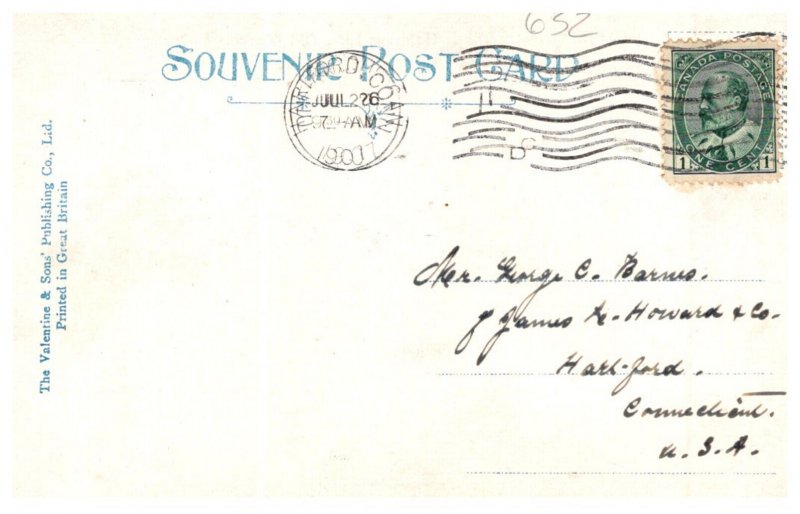 652
SOUVENIR POST CARD
CANADA POSTAGE
1 ONE CENT 1
JUL 26
AM
1907
The Valentine & Sons' Publishing Co., Ltd.
Printed in Great Britain
Mr. George C. Barnes.
James L. Howard & Co.
Hartford.
Connecticut.
U. S. A.